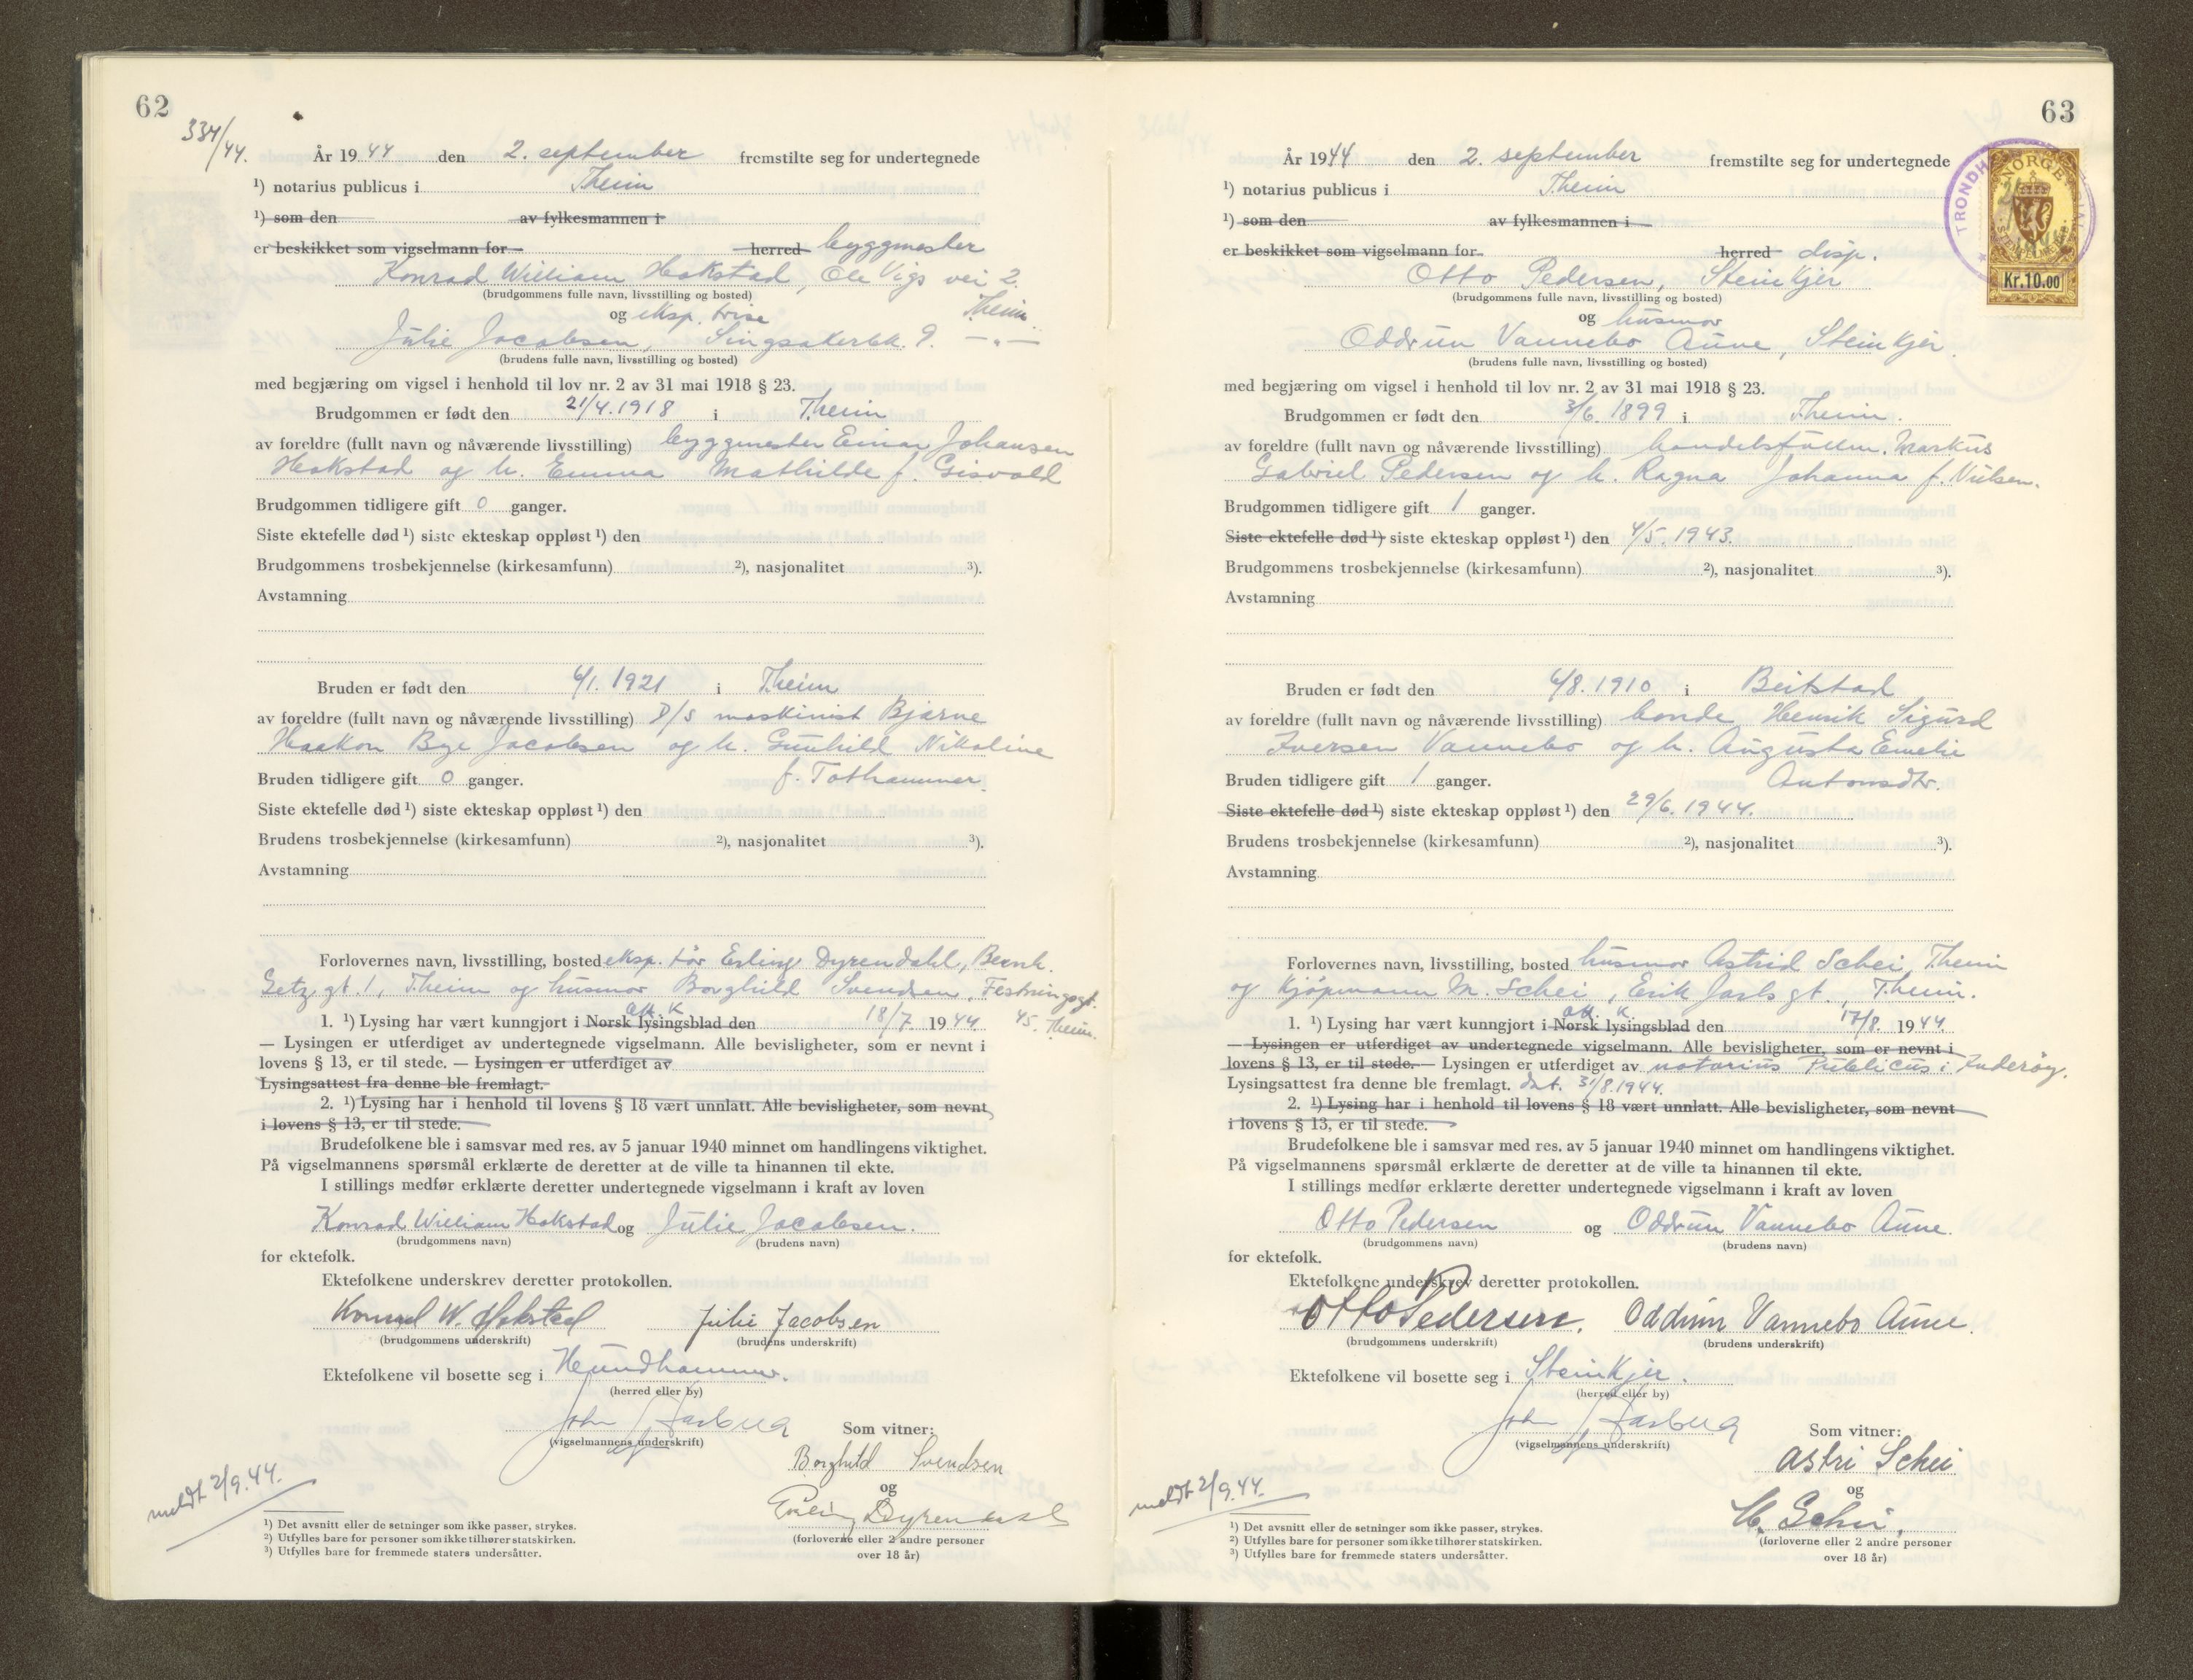 62
334/44.
År 1944 den 2. september fremstilte seg for undertegnede
¹) notarius publicus i Theim
¹) som den av fylkesmannen i
er beskikket som vigselmann for herred byggmester
Konrad William Hokstad, Ole Vigs vei 2.
(brudgommens fulle navn, livsstilling og bosted) Theim.
og eksp. trise
Julie Jacobsen, Singsakerbk. 9. —"—
(brudens fulle navn, livsstilling og bosted)
med begjæring om vigsel i henhold til lov nr. 2 av 31 mai 1918 § 23.
Brudgommen er født den 21/4.1918 i Theim
av foreldre (fullt navn og nåværende livsstilling) byggmester Einar Johansen
Hokstad og h. Emma Mathilde f. Gisvold
Brudgommen tidligere gift 0 ganger.
Siste ektefelle død ¹) siste ekteskap oppløst ¹) den
Brudgommens trosbekjennelse (kirkesamfunn) ²), nasjonalitet ³).
Avstamning
Bruden er født den 6/1. 1921 i Theim
av foreldre (fullt navn og nåværende livsstilling) D/S maskinist Bjarne
Haakon Bye Jacobsen og h. Gunhild Nikoline
Bruden tidligere gift 0 ganger. f. Tothammer.
Siste ektefelle død ¹) siste ekteskap oppløst ¹) den
Brudens trosbekjennelse (kirkesamfunn) ²), nasjonalitet ³).
Avstamning
Forlovernes navn, livsstilling, bosted eksp. tør Erling Dyrendahl, Bernh.
Getz gt. 1, Theim og husmor Borghild Svendsen, Festningsgt.
45. Theim.
1. ¹) Lysing har vært kunngjort i Norsk lysingsblad den 18/7 1944
— Lysingen er utferdiget av undertegnede vigselmann. Alle bevisligheter, som er nevnt i
lovens § 13, er til stede. — Lysingen er utferdiget av
Lysingsattest fra denne ble fremlagt.
2. ¹) Lysing har i henhold til lovens § 18 vært unnlatt. Alle bevisligheter, som nevnt
i lovens § 13, er til stede.
Brudefolkene ble i samsvar med res. av 5 januar 1940 minnet om handlingens viktighet.
På vigselmannens spørsmål erklærte de deretter at de ville ta hinannen til ekte.
I stillings medfør erklærte deretter undertegnede vigselmann i kraft av loven
Konrad William Hokstad og Julie Jacobsen.
(brudgommens navn) (brudens navn)
for ektefolk.
Ektefolkene underskrev deretter protokollen.
Konrad W. Hokstad Julie Jacobsen
(brudgommens underskrift) (brudens underskrift)
Ektefolkene vil bosette seg i Hundhammer.
(herred eller by)
John Aasberg
(vigselmannens underskrift)
Som vitner:
Borghild Svendsen
og
Erling Dyrendahl
(forloverne eller 2 andre personer
over 18 år)
meldt 2/9.44.
¹) Det avsnitt eller de setninger som ikke passer, strykes.
²) Utfylles bare for personer som ikke tilhører statskirken.
³) Utfylles bare for fremmede staters undersåtter.
63
TRONDH
NORGE
Kr.10.00
År 1944 den 2. september fremstilte seg for undertegnede
¹) notarius publicus i Theim
¹) som den av fylkesmannen i
er beskikket som vigselmann for herred disp.
Otto Pedersen, Steinkjer
(brudgommens fulle navn, livsstilling og bosted)
og husmor
Oddrun Vannebo Aune, Steinkjer.
(brudens fulle navn, livsstilling og bosted)
med begjæring om vigsel i henhold til lov nr. 2 av 31 mai 1918 § 23.
Brudgommen er født den 3/6. 1899 i Theim.
av foreldre (fullt navn og nåværende livsstilling) handelsfullm. Markus
Gabriel Pedersen og h. Ragna Johanna f. Nilsen.
Brudgommen tidligere gift 1 ganger.
Siste ektefelle død ¹) siste ekteskap oppløst ¹) den 4/5. 1943.
Brudgommens trosbekjennelse (kirkesamfunn) ²), nasjonalitet ³).
Avstamning
Bruden er født den 6/8. 1910 i Beitstad
av foreldre (fullt navn og nåværende livsstilling) bonde Henrik Sigurd
Iversen Vannebo og h. Augusta Emelie
Bruden tidligere gift 1 ganger. Antonsdtr.
Siste ektefelle død ¹) siste ekteskap oppløst ¹) den 29/6. 1944.
Brudens trosbekjennelse (kirkesamfunn) ²), nasjonalitet ³).
Avstamning
Forlovernes navn, livsstilling, bosted husmor Astrid Schei, Theim
og kjøpmann M. Schei, Erik Jarls gt., Theim.
1. ¹) Lysing har vært kunngjort i Norsk lysingsblad den 17/8. 1944.
— Lysingen er utferdiget av undertegnede vigselmann. Alle bevisligheter, som er nevnt i
lovens § 13, er til stede. — Lysingen er utferdiget av notarius Publicus i Inderøy.
Lysingsattest fra denne ble fremlagt. dat. 31/8.1944.
2. ¹) Lysing har i henhold til lovens § 18 vært unnlatt. Alle bevisligheter, som nevnt
i lovens § 13, er til stede.
Brudefolkene ble i samsvar med res. av 5 januar 1940 minnet om handlingens viktighet.
På vigselmannens spørsmål erklærte de deretter at de ville ta hinannen til ekte.
I stillings medfør erklærte deretter undertegnede vigselmann i kraft av loven
Otto Pedersen og Oddrun Vannebo Aune.
(brudgommens navn) (brudens navn)
for ektefolk.
Ektefolkene underskrev deretter protokollen.
Otto Pedersen. Oddrun Vannebo Aune.
(brudgommens underskrift) (brudens underskrift)
Ektefolkene vil bosette seg i Steinkjer.
(herred eller by)
John Aasberg
(vigselmannens underskrift)
Som vitner:
Astri Schei
og
M. Schei,
(forloverne eller 2 andre personer
over 18 år)
meldt 2/9.44.
¹) Det avsnitt eller de setninger som ikke passer, strykes.
²) Utfylles bare for personer som ikke tilhører statskirken.
³) Utfylles bare for fremmede staters undersåtter.